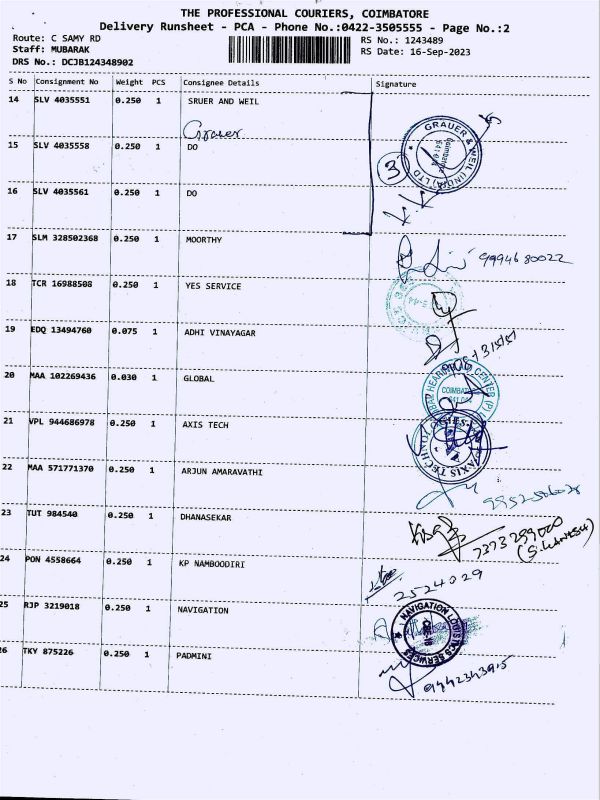 THE PROFESSIONAL COURIERS, COIMBATORE
Delivery Runsheet - PCA - Phone No.:0422-3505555 - Page No.:2
Route: C SAMY RD
RS No.: 1243489
Staff: MUBARAK
RS Date: 16-Sep-2023
DRS No.: DCJB124348902
S No Consignment No Weight PCS Consignee Details Signature
14 SLV 4035551 0.250 1 SRUER AND WEIL
Grauer
15 SLV 4035558 0.250 1 DO
GRAUER & WEIL (INDIA) LTD
3
16 SLV 4035561 0.250 1 DO
17 SLM 328502368 0.250 1 MOORTHY
9994680022
18 TCR 16988508 0.250 1 YES SERVICE
19 EDQ 13494760 0.075 1 ADHI VINAYAGAR
20 MAA 102269436 0.030 1 GLOBAL
HEARING AID CENTER (P)
COIMBATORE
21 VPL 944686978 0.250 1 AXIS TECH
AXIS TECHNOLOGIES
22 MAA 571771370 0.250 1 ARJUN AMARAVATHI
23 TUT 984540 0.250 1 DHANASEKAR
7373299000
24 PON 4558664 0.250 1 KP NAMBOODIRI
2524029
25 RJP 3219018 0.250 1 NAVIGATION
NAVIGATION LOGISTICS SERVICES
26 TKY 875226 0.250 1 PADMINI
9442343915